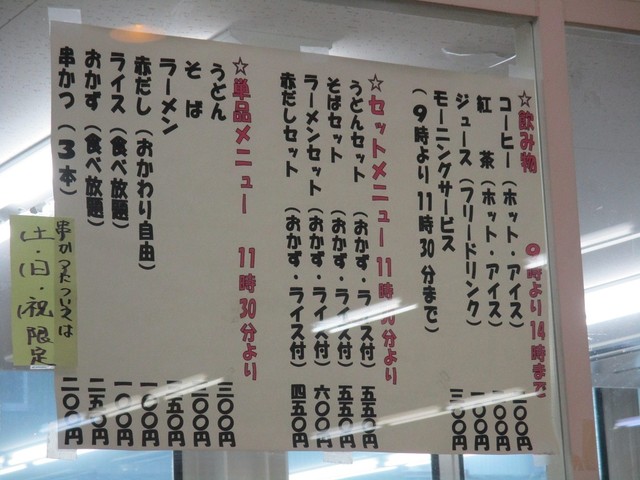 ☆飲み物 9時より14時まで
コーヒー(ホット・アイス) 二〇〇円
紅茶(ホット・アイス) 二〇〇円
ジュース(フリードリンク) 二〇〇円
モーニングサービス 三〇〇円
(9時より11時30分まで)
☆セットメニュー 11時30分より
うどんセット(おかず・ライス付) 五五〇円
そばセット(おかず・ライス付) 五五〇円
ラーメンセット(おかず・ライス付) 六〇〇円
赤だしセット(おかず・ライス付) 四五〇円
☆単品メニュー 11時30分より
うどん 三〇〇円
そば 三〇〇円
ラーメン 三五〇円
赤だし(おかわり自由) 一〇〇円
ライス(食べ放題) 一〇〇円
おかず(食べ放題) 二五〇円
串かつ(3本) 二〇〇円
串かつについては
土・日・祝限定